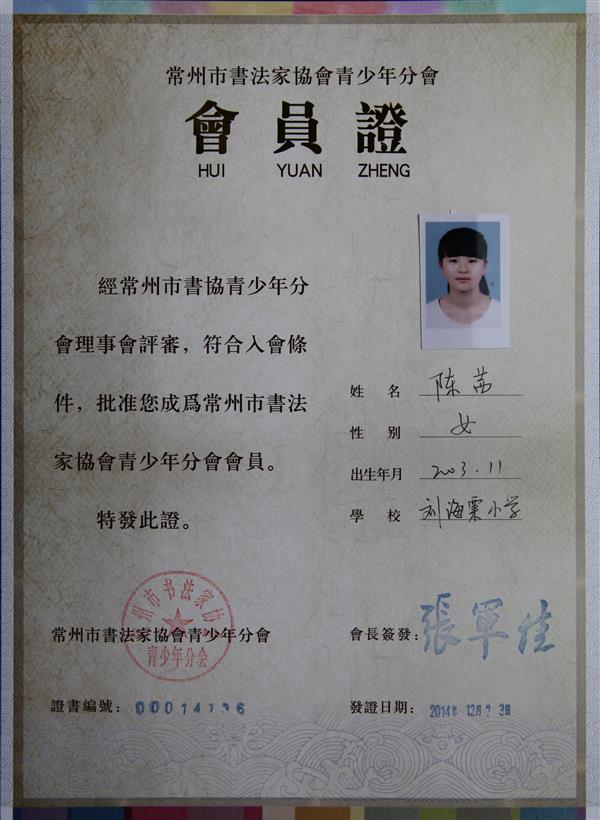 常州市書法家協會青少年分會
會員證
HUI YUAN ZHENG
經常州市書協青少年分
會理事會評審，符合入會條
件，批准您成爲常州市書法
家協會青少年分會會員。
特發此證。
姓 名 陈茜
性 别 女
出生年月 2003.11
學 校 刘海粟小学
常州市书法家协
青少年分会
常州市書法家協會青少年分會
會長簽發：張軍佳
證書編號：000141
發證日期：2014年 12月 3日